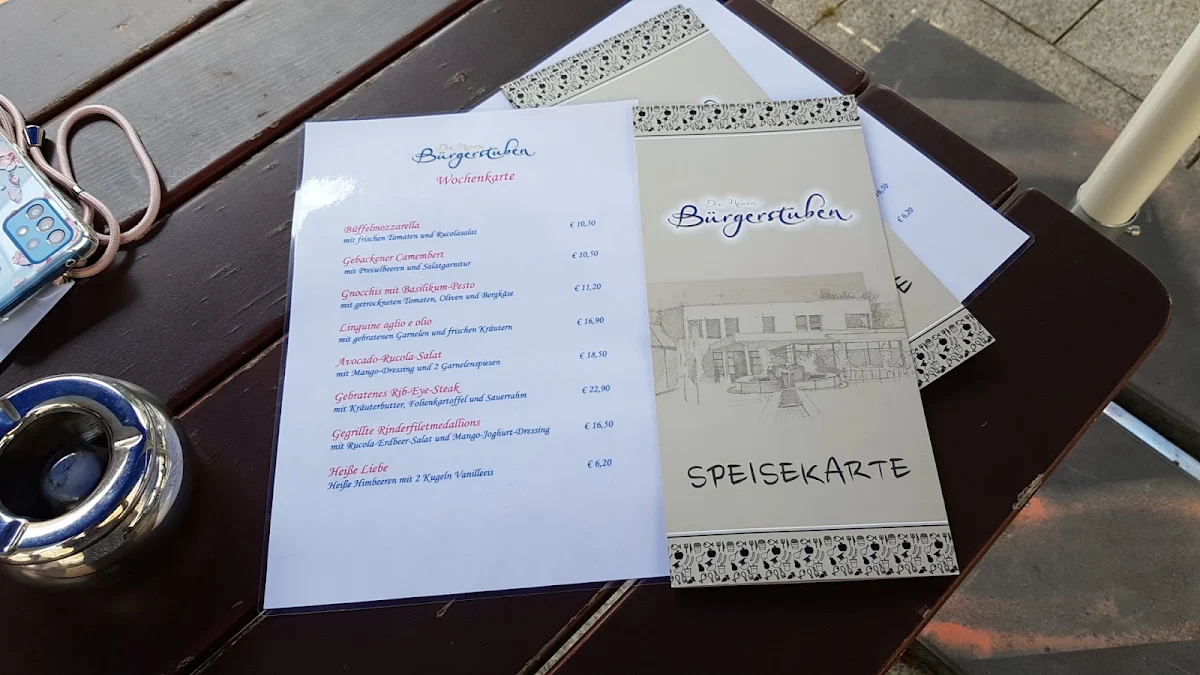 Die Neuen
Bürgerstuben
Wochenkarte
Büffelmozzarella € 10,50
mit frischen Tomaten und Rucolasalat
Gebackener Camembert € 10,50
mit Preiselbeeren und Salatgarnitur
Gnocchis mit Basilikum-Pesto € 11,20
mit getrockneten Tomaten, Oliven und Bergkäse
Linguine aglio e olio € 16,90
mit gebratenen Garnelen und frischen Kräutern
Avocado-Rucola-Salat € 18,50
mit Mango-Dressing und 2 Garnelenspiesen
Gebratenes Rib-Eye-Steak € 22,90
mit Kräuterbutter, Folienkartoffel und Sauerrahm
Gegrillte Rinderfiletmedallions € 16,50
mit Rucola-Erdbeer-Salat und Mango-Joghurt-Dressing
Heiße Liebe € 6,20
Heiße Himbeeren mit 2 Kugeln Vanilleeis
Die Neuen
Bürgerstuben
SPEISEKARTE
16,50
€ 6,20
E